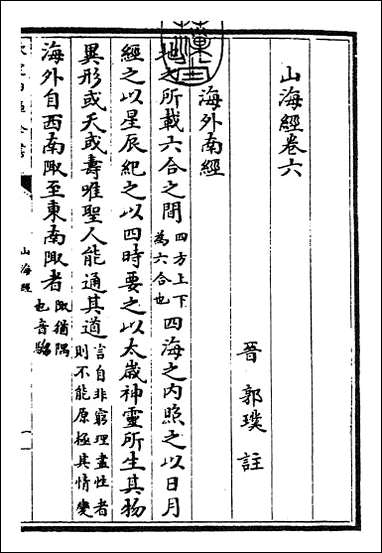 山海經卷六
晉 郭璞 註
海外南經
地之所載六合之間四方上下為六合也四海之内照之以日月
經之以星辰紀之以四時要之以太歲神靈所生其物
異形或夭或壽唯聖人能通其道言自非窮理盡性者則不能原極其情變
海外自西南陬至東南陬者陬猶隅也音騶
山海經